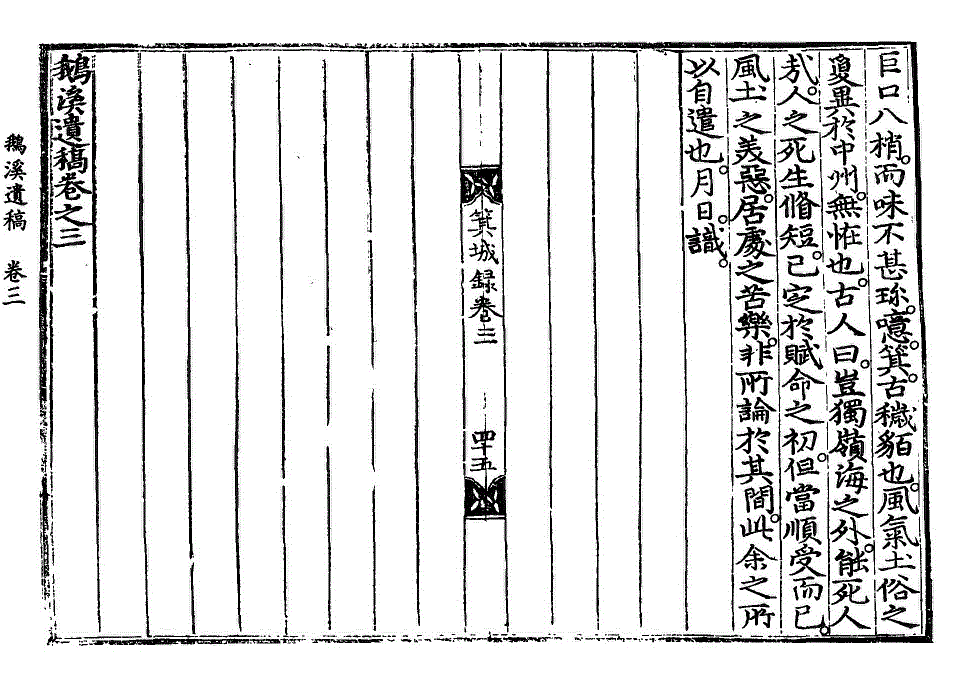 巨口八梢。而味不甚珎。噫。箕。古穢貊也。風氣土俗之
敻異於中州。無恠也。古人曰。豈獨嶺海之外。能死人
㢤。人之死生脩短。已定於賦命之初。但當順受而已。
風土之美惡。居處之苦樂。非所論於其間。此余之所
以自遣也。月日。識。
箕城録卷三
四十五
鵝溪遺稿卷之三
鵝溪遺稿 卷三